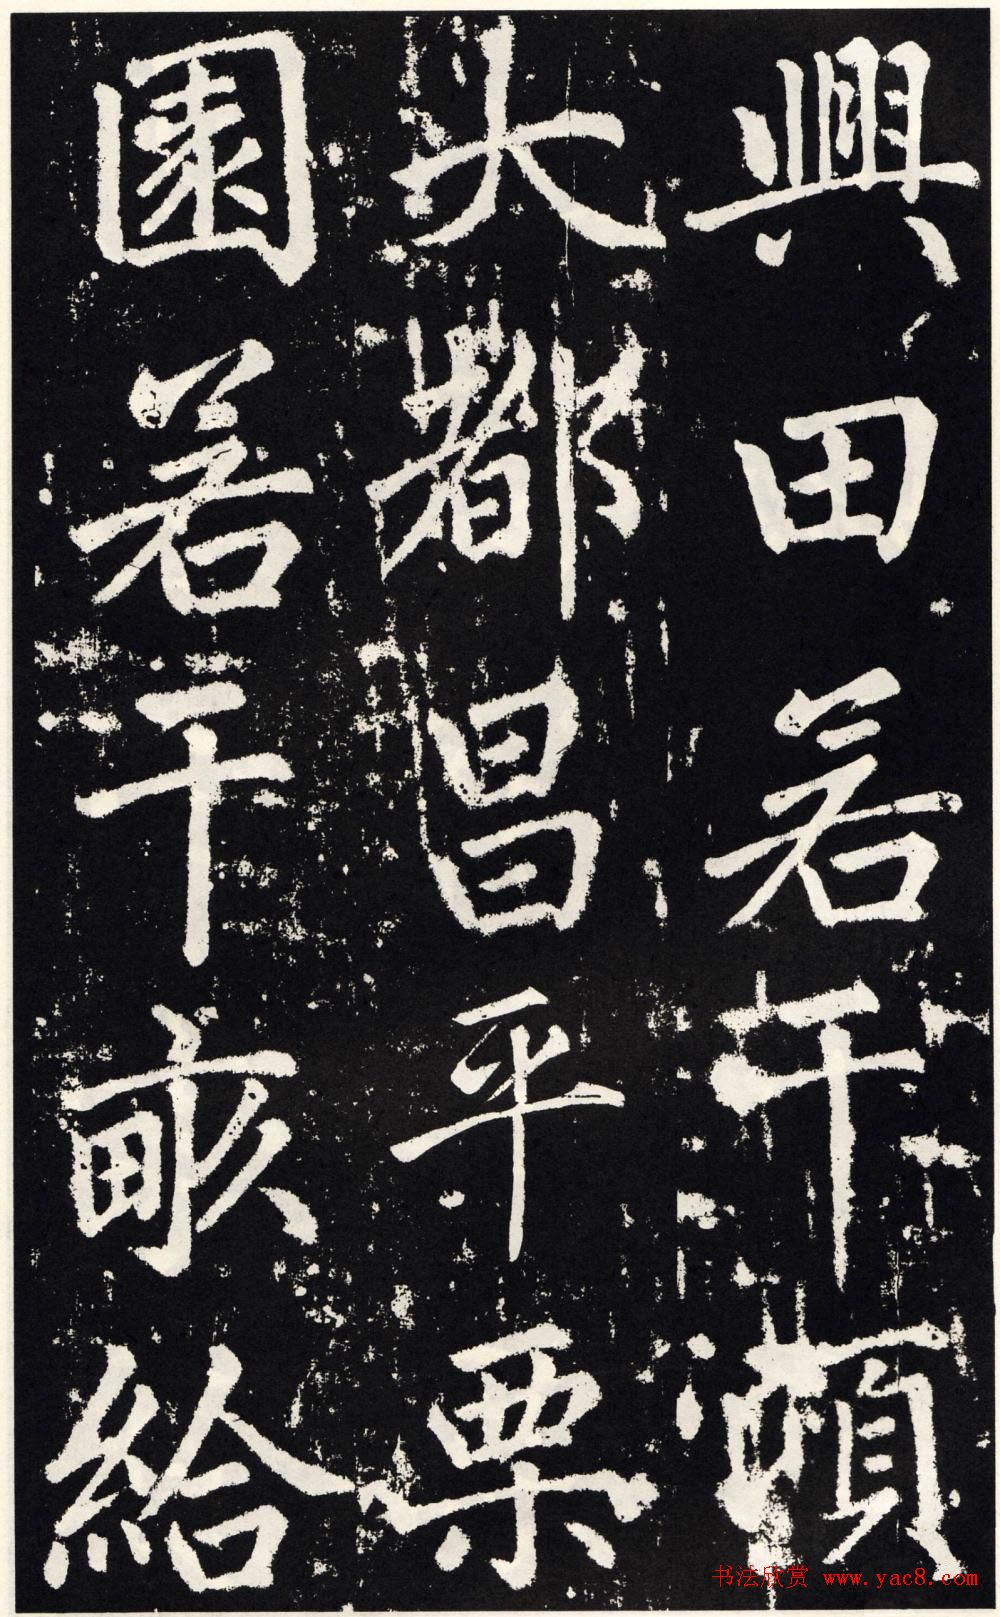 興田若干頃
大都昌平栗
園若干畝給
书法欣赏 www.yac8.com